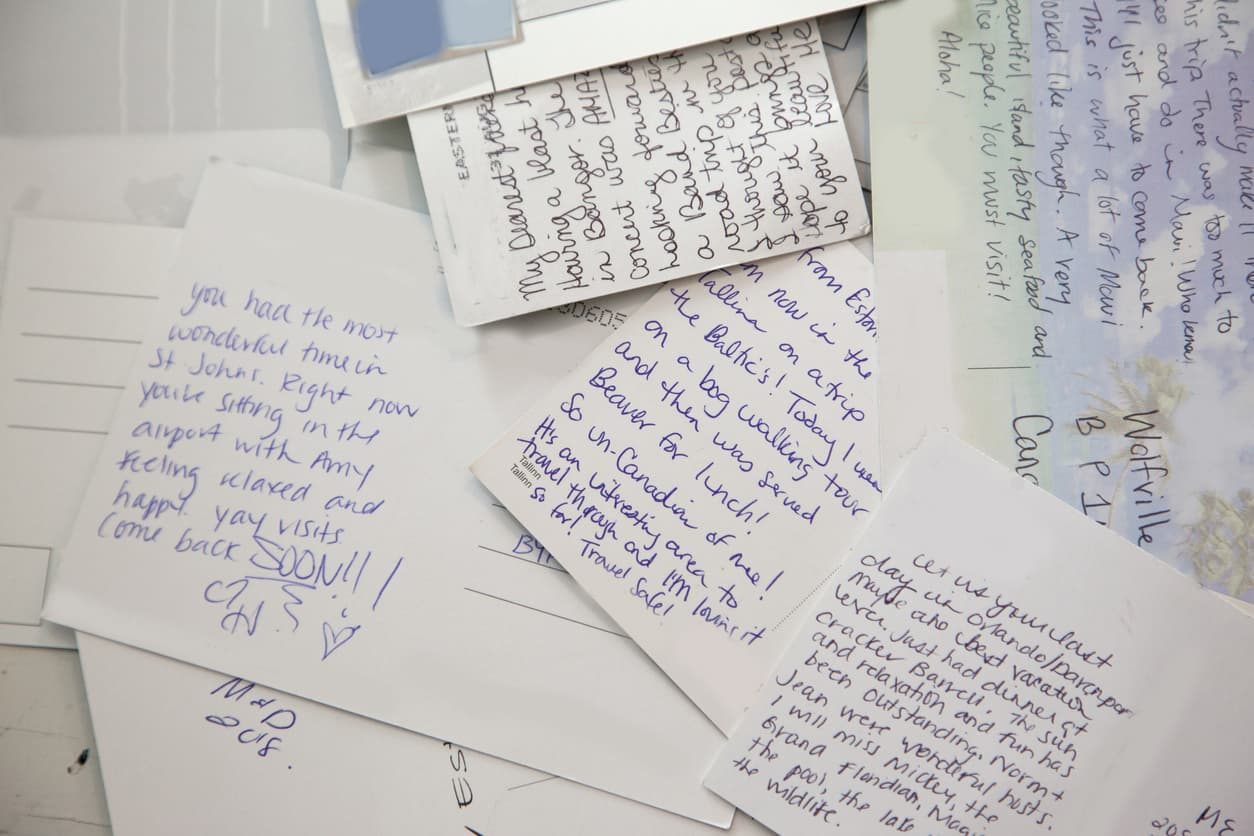 you had the most
wonderful time in
St Johns. Right now
you're sitting in the
airport with Amy
feeling relaxed and
happy. yay visits
Come back SOON!!!
M & D
2018.
EASTERN
My Dearest
Having a blast
in Bangor. The
concert was AMA
Looking forward
a Bend Besties
road trip in
thought of you
I saw this post
Hope it brings a
to your beautifu
Love
from Eston
I'm now in the
Tallinn on a trip
the Baltic's! Today I was
on a bog walking tour
and then was served
Beaver for lunch!
So un-Canadian of me!
It's an interesting area to
travel through and I'm loving it
so far! Travel safe!
Tallinn
Tallinn
didn't actually make it
this trip. There was too much to
see and do in Maui! Who knew
I'll just have to come back.
This is what a lot of Maui
looked like though. A very
beautiful island, tasty seafood and
nice people. You must visit!
Aloha!
Wolfville
B P 1
Cana
Let us your last
day in Orlando/Davenpor
maybe the best vacation
ever. Just had dinner at
Cracker Barrell. The sun
and relaxation and fun has
been outstanding. Norm +
Jean were wonderful hosts.
I will miss Mickey, the
Grand Floridian, Magi
the pool, the lake
the wildlife.
ME
20
EST